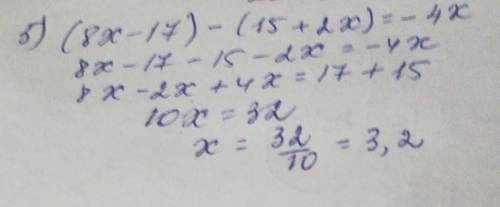 б) (8x-17) - (15+2x) = -4x
8x-17-15-2x = -4x
8x-2x+4x = 17+15
10x = 32
x = 32/10 = 3,2